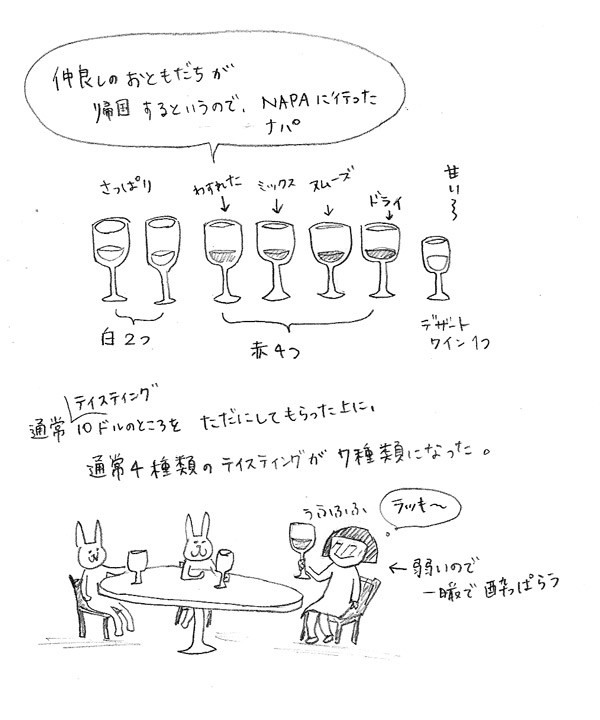 仲良しのおともだちが
帰国するというので、NAPAに行った
ナパ
さっぱり
わすれた
ミックス
スムーズ
ドライ
甘い〜〜
白2つ
赤4つ
デザート
ワイン1つ
テイスティング
通常10ドルのところを ただにしてもらった上に、
通常4種類のテイスティングが7種類になった。
うふふふ
ラッキ〜
←弱いので
一瞬で酔っぱらう